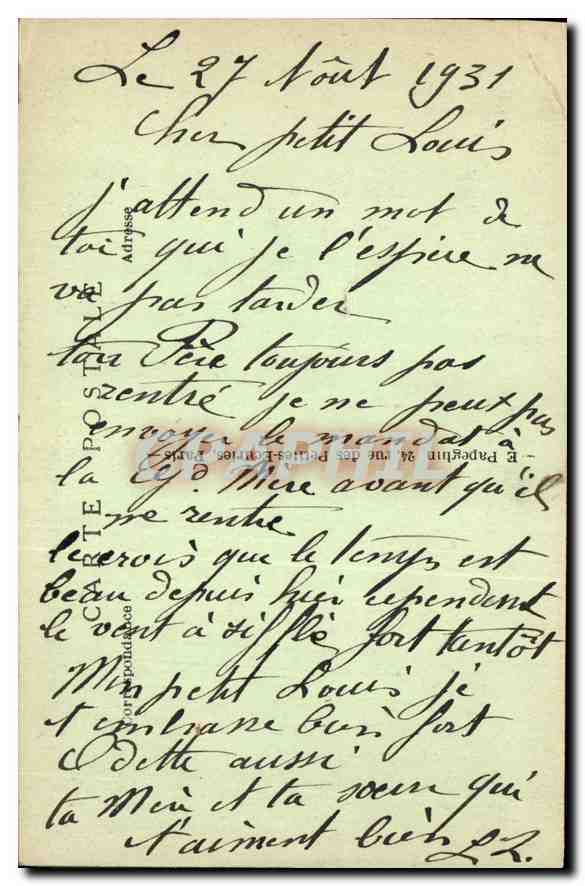 Le 27 Août 1931
Cher petit Louis
j'attend un mot de
toi qui je l'espère ne
va pas tarder
ton Père toujours pas
rentré je ne peux pas
envoyer le mandat à
la Gd. Mère avant qu'il
ne rentre
Je crois que le temps est
beau depuis hier cependant
le vent à sifflé fort tantôt
Mon petit Louis je
t'embrasse bien fort
Odette aussi
ta Mère et ta soeur qui
t'aiment bien
CARTE POSTALE
Correspondance
Adresse
E. Papeghin, 24, rue des Petites-Ecuries, Paris
CPAPHIL